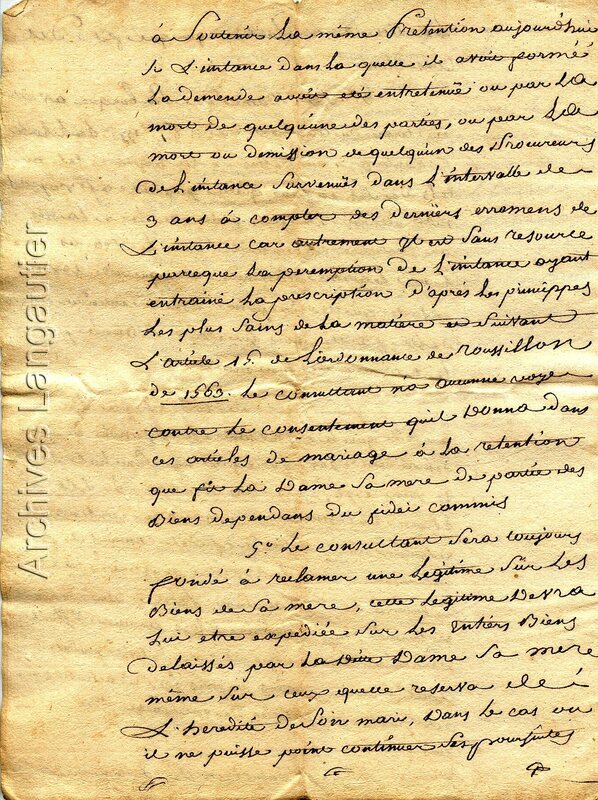 à Soutenir la même Pretention aujourd'hui
si L'intance dans la quelle il avoit formée
La demende avoit eté entretenuë ou par la
mort de quelqu'une des parties, ou par la
mort ou demission de quelqu'un des Procureurs
de L'intance Survenuës dans L'intervalle de
3 ans à compter des derniers erremens de
L'intance car autrement il est Sans resource
parceque La peremption de L'intance ayant
entrainé La prescription D'après Les princippes
Les plus Sains de La matiere et Suivant
L'article 15. de L'ordonnance de roussillon
de 1563. Le consultant n'a aucunne voye
contre Le consentement qu'il Donna dans
ces articles de mariage à La retention
que fit La Dame Sa mere de partie des
Biens dependans du fidei commis
5.º Le consultant Sera toujours
fondé à reclamer une Legitime Sur Les
Biens de Sa mere, cette Legitime Devra
Lui etre expediée Sur Les Entiers Biens
delaissés par La Dite Dame Sa mere
même Sur ceux quelle reserva de
L'heredité de Son mari, Dans le cas ou
il ne puisse point continuer Ses poursuites
Archives Langautier